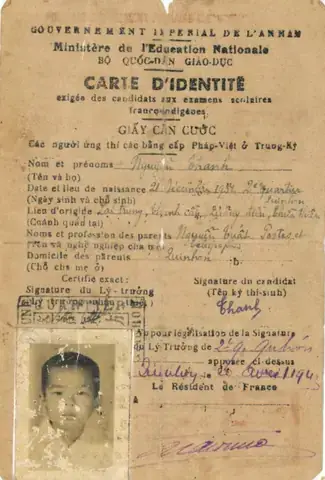 GOUVERNEMENT IMPERIAL DE L'ANNAM
Ministère de l'Education Nationale
BỘ QUỐC-DÂN GIÁO-DỤC
CARTE D'IDENTITÉ
exigée des candidats aux examens scolaires
franco-indigènes.
GIẤY CĂN CƯỚC
Các người ứng thí các bằng cấp Pháp-Việt ở Trung-Kỳ
Nom et prénoms Nguyễn Thanh
(Tên và họ)
Date et lieu de naissance 21 Décembre 1934 2è quartier
(Ngày sinh và chỗ sinh) Quinhon
Lieu d'origine
(Chánh quán tại)
Noms et profession des parents Nguyễn Postes et
(Tên và nghề nghiệp cha mẹ)
Domicile des parents Quinhon
(Chỗ cha mẹ ở)
Certifié exact:
Signature du Lý-trưởng
Signature du candidat
(Tên ký thí-sinh)
Thanh
QUARTIER
Vu pour légalisation de la Signature
du Lý Trưởng de 2è q. Quinhon
apposée ci-dessus
Quinhon, le 194
Le Résident de France